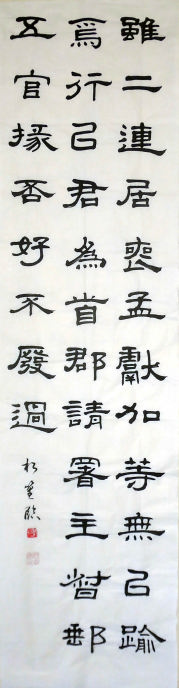 雖二連居喪孟獻加等無㠯踰
焉行㠯君為首郡請署主督郵
五官掾否好不廢過
臨